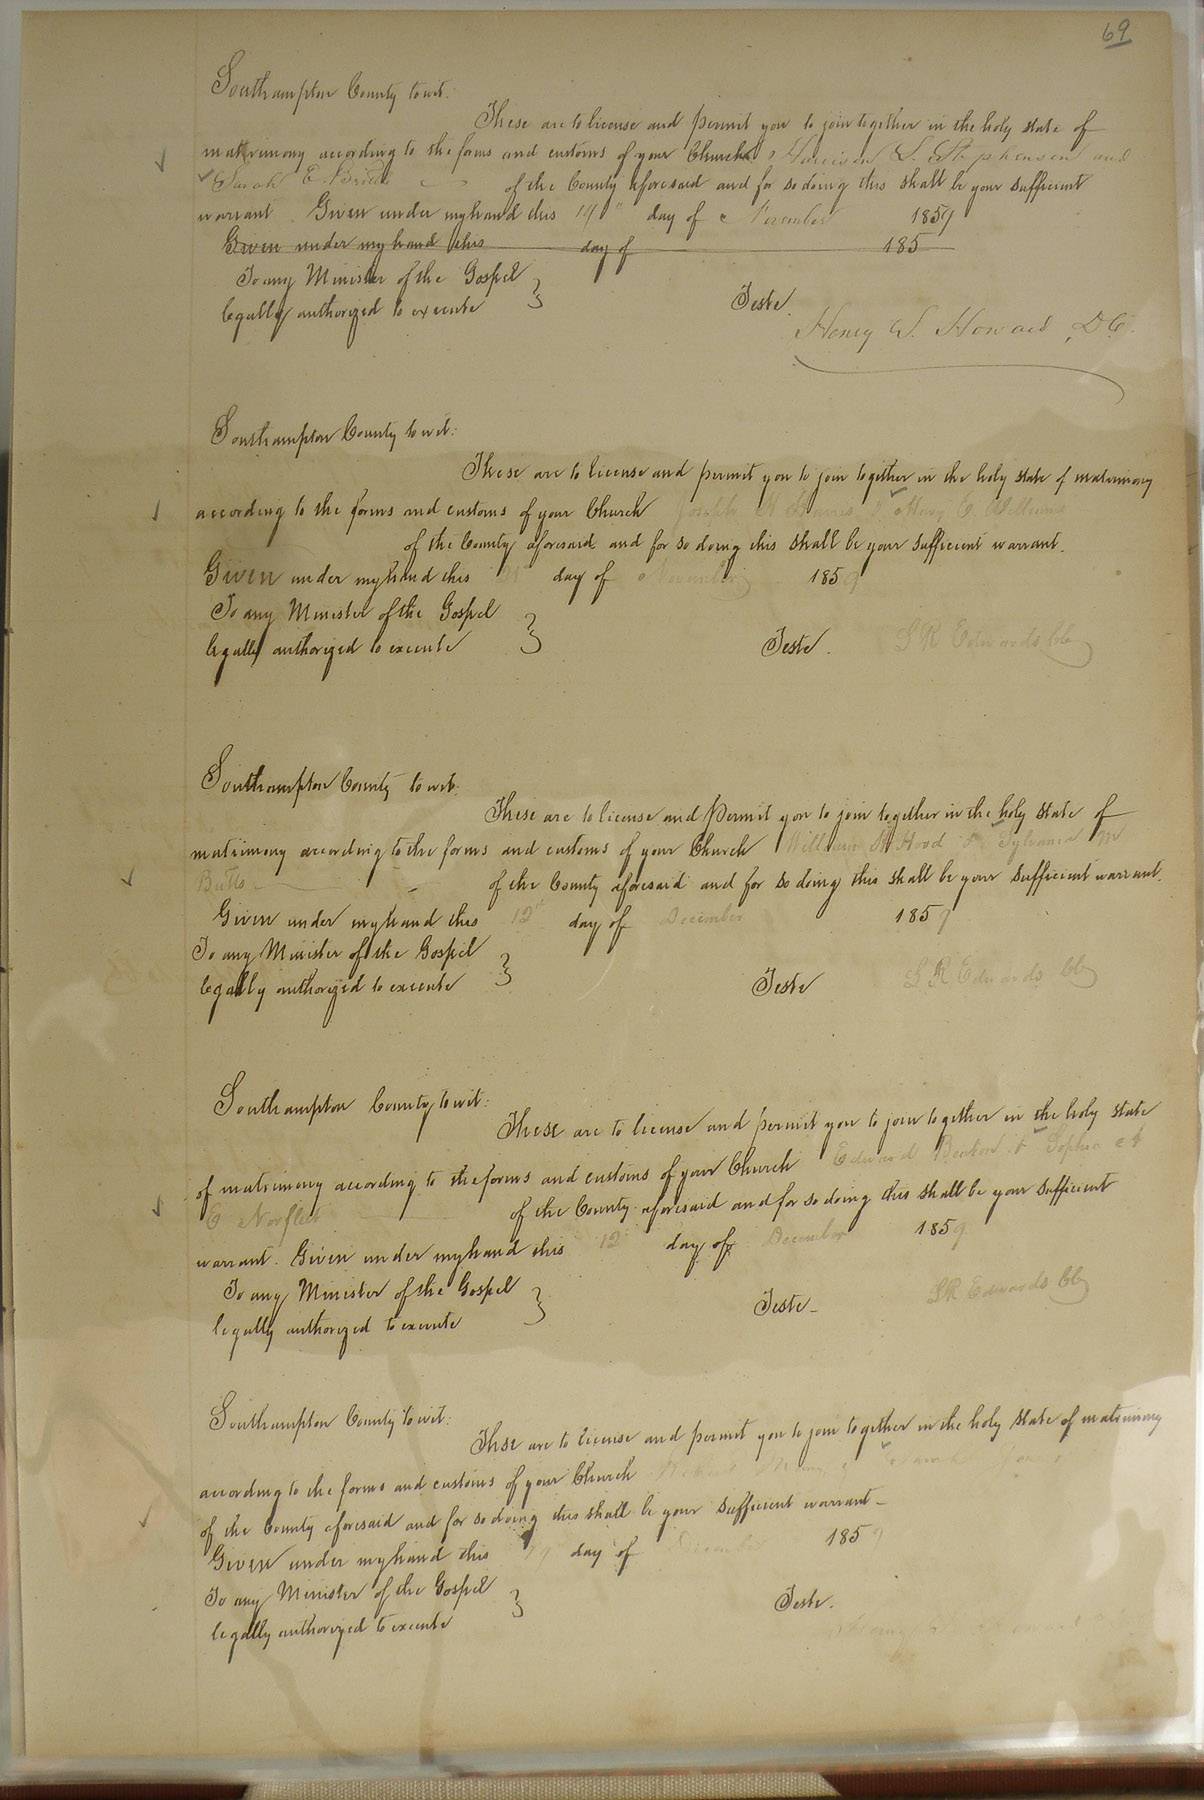 69
Southampton County to wit:
These are to license and permit you to join together in the holy state of
matrimony according to the forms and customs of your Church Harrison L. Stephenson and
Sarah E. of the County aforesaid and for so doing this shall be your sufficient
warrant Given under my hand this day of November 1859
Given under my hand this day of 185
To any Minister of the Gospel
legally authorized to execute } Teste.
Henry S. Howard, D.C.
Southampton County to wit:
These are to license and permit you to join together in the holy state of matrimony
according to the forms and customs of your Church Joseph & Mary E. Williams
of the County aforesaid and for so doing this shall be your sufficient warrant.
Given under my hand this 21 day of November 1859
To any Minister of the Gospel
legally authorized to execute } Teste. L R Edwards Clk
Southampton County to wit:
These are to license and permit you to join together in the holy state of
matrimony according to the forms and customs of your Church William H Hood & M
Butts of the County aforesaid and for so doing this shall be your sufficient warrant.
Given under my hand this 12th day of December 1859
To any Minister of the Gospel
legally authorized to execute } Teste L R Edwards Clk
Southampton County to wit:
These are to license and permit you to join together in the holy state
of matrimony according to the forms and customs of your Church Edward Beaton & Sophia A
E Norfleet of the County aforesaid and for so doing this shall be your sufficient
warrant. Given under my hand this 12 day of December 1859
To any Minister of the Gospel
legally authorized to execute } Teste- L R Edwards Clk
Southampton County to wit:
These are to license and permit you to join together in the holy state of matrimony
according to the forms and customs of your Church
of the County aforesaid and for so doing this shall be your sufficient warrant-
Given under my hand this day of December 1859
To any Minister of the Gospel
legally authorized to execute } Teste.